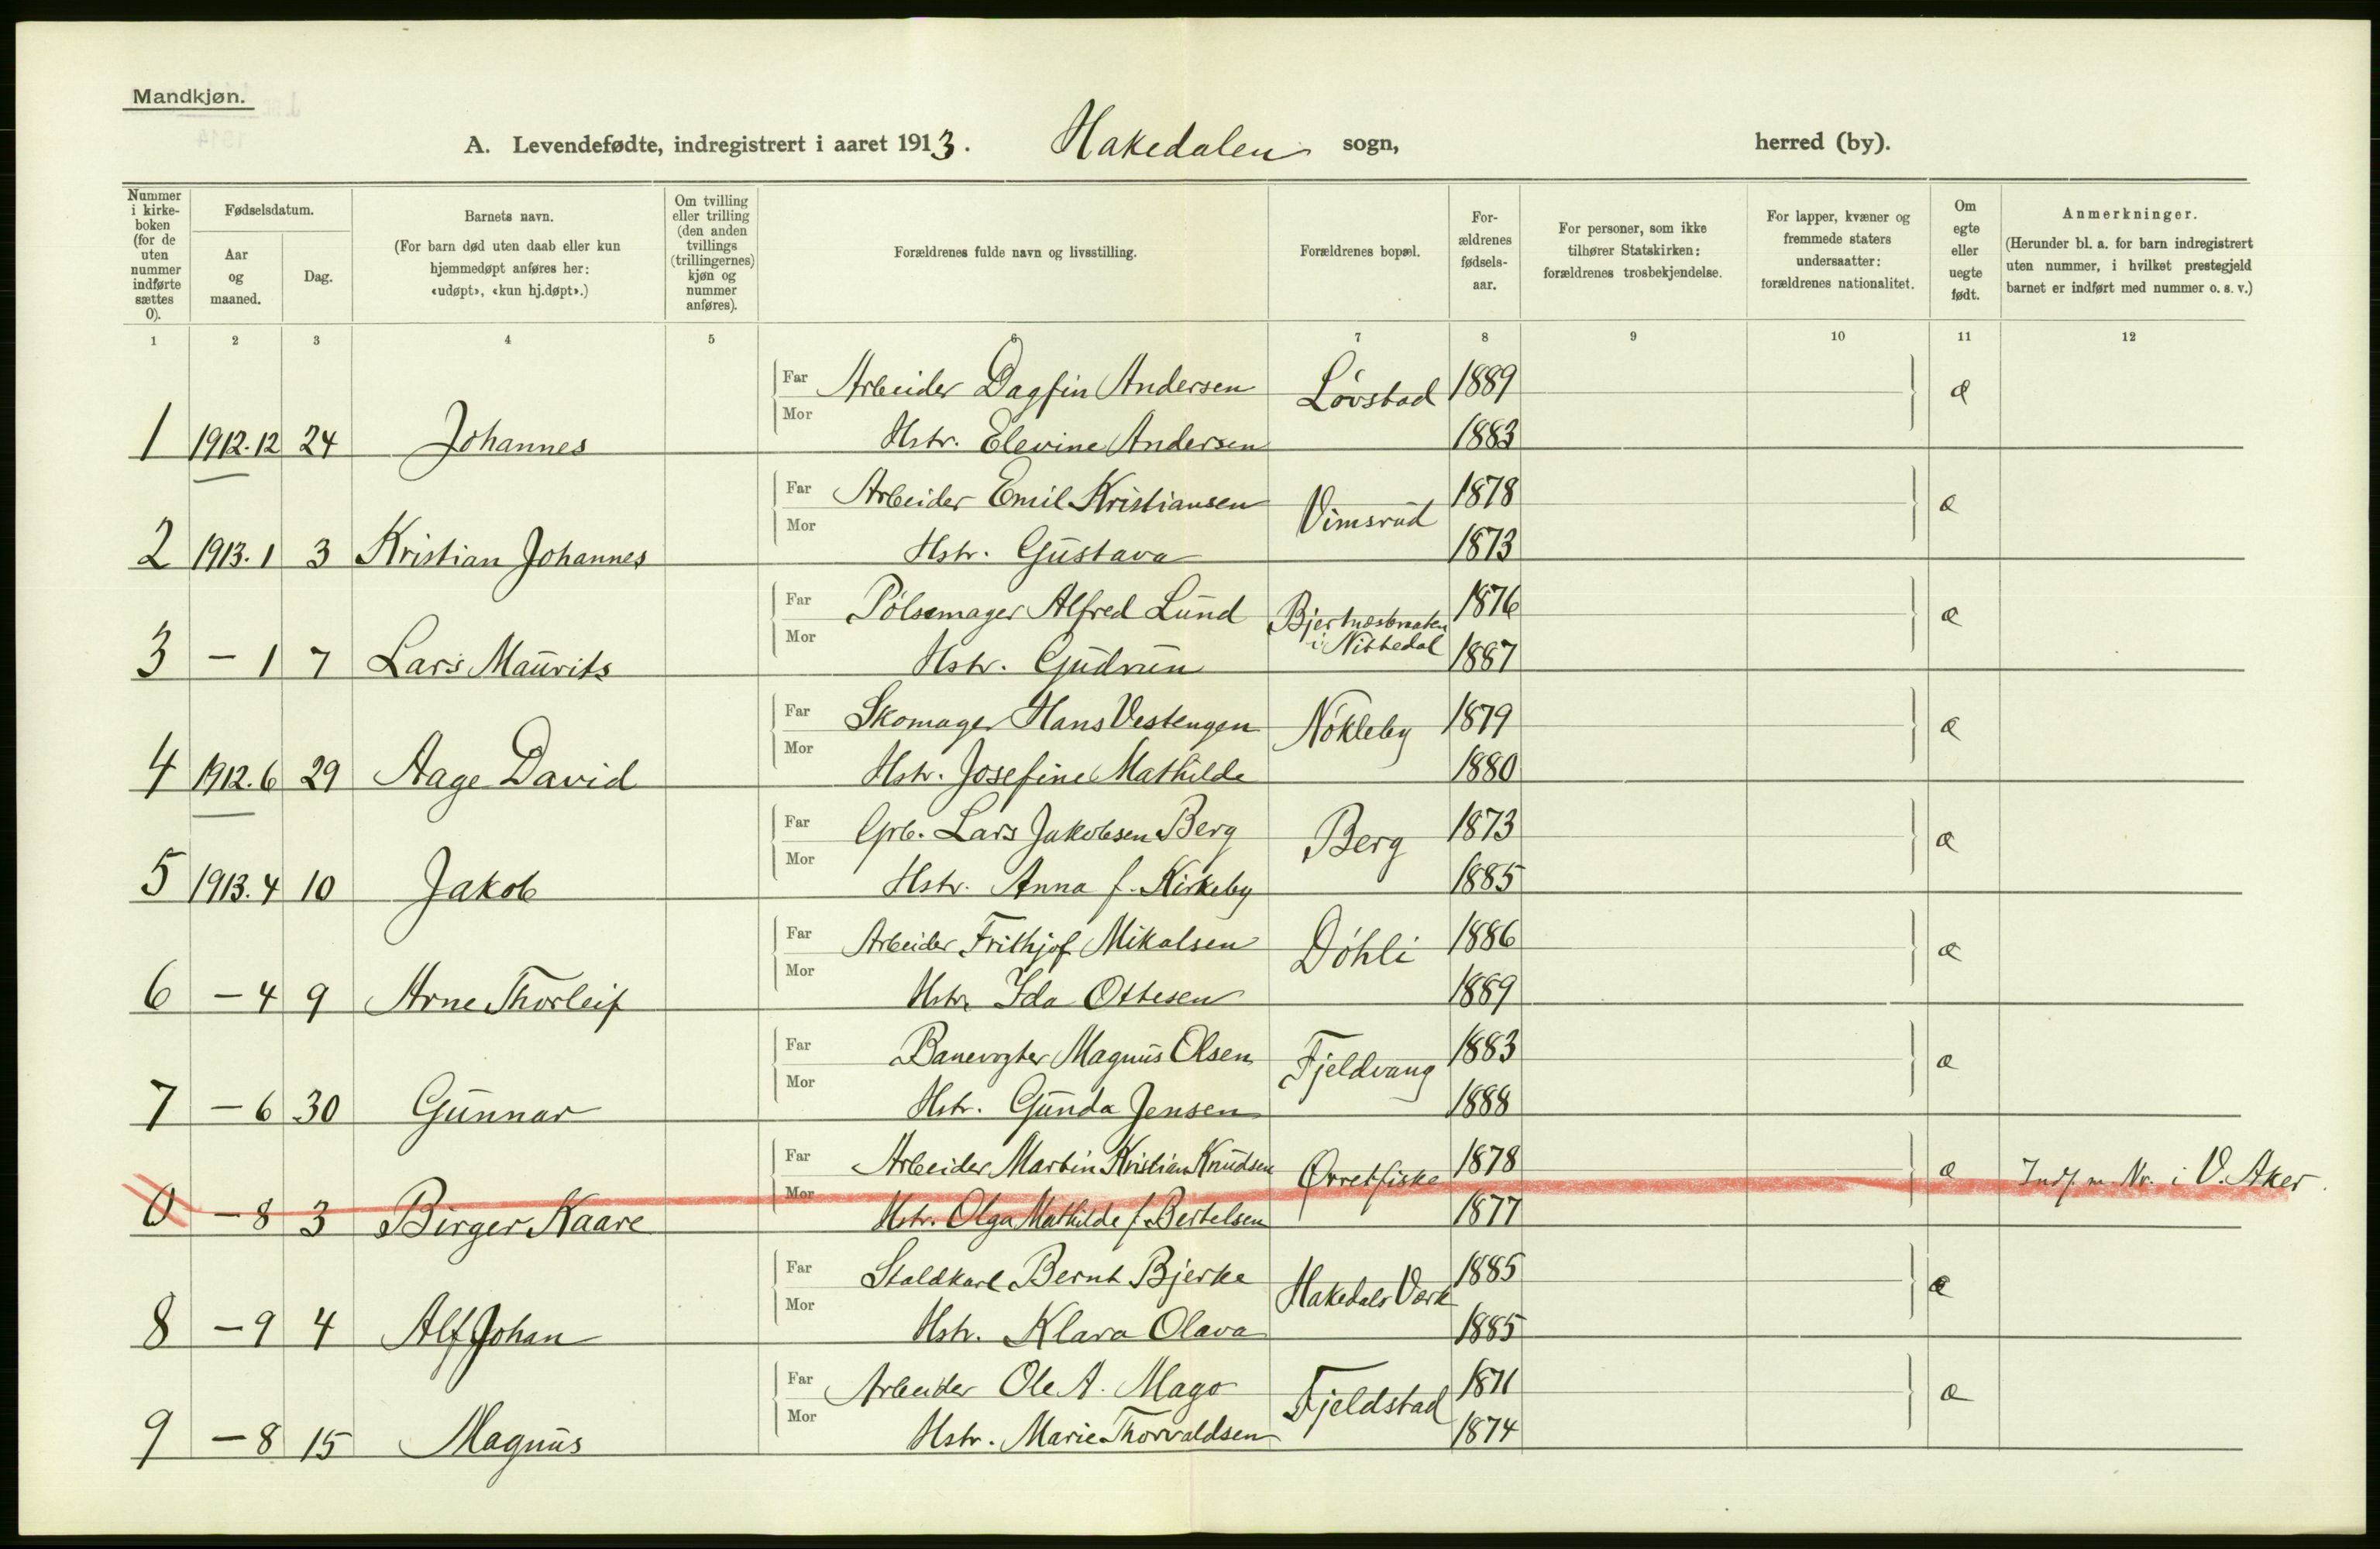 Mandkjøn.
A. Levendefødte, indregistrert i aaret 1913. Hakedalen sogn, herred (by).
Nummer i kirke-boken (for de uten nummer indførte sættes 0).
Fødselsdatum.
Aar og maaned.
Dag.
Barnets navn.
(For barn død uten daab eller kun hjemmedøpt anføres her: «udøpt», «kun hj.døpt».)
Om tvilling eller trilling (den anden tvillings (trillingernes) kjøn og nummer anføres).
Forældrenes fulde navn og livsstilling.
Forældrenes bopæl.
For-ældrenes fødsels-aar.
For personer, som ikke tilhører Statskirken: forældrenes trosbekjendelse.
For lapper, kvæner og fremmede staters undersaatter: forældrenes nationalitet.
Om egte eller uegte født.
Anmerkninger.
(Herunder bl. a. for barn indregistrert uten nummer, i hvilket prestegjeld barnet er indført med nummer o. s. v.)
1 2 3 4 5 6 7 8 9 10 11 12
Far Arbeider Dagfin Andersen Løvstad 1889 æ
1 1912.12 24 Johannes Mor Hstr. Elevine Andersen 1883
Far Arbeider Emil Kristiansen Vimsrud 1878 æ
2 1913.1 3 Kristian Johannes Mor Hstr. Gustava 1873
Far Pølsemager Alfred Lund i Nittedal 1876 æ
3 – 1 7 Lars Maurits Mor Hstr. Gudrun 1887
Far Skomager Hans Vestengen Nøkleby 1879 æ
4 1912.6 29 Aage David Mor Hstr. Josefine Mathilde 1880
Far Grb. Lars Jakobsen Berg Berg 1873 æ
5 1913.4 10 Jakob Mor Hstr. Anna f. Kirkeby 1885
Far Arbeider Frithjof Mikalsen Døhli 1886 æ
6 – 4 9 Arne Thorleif Mor Hstr. Ida Ottesen 1889
Far Banevogter Magnus Olsen Fjeldvang 1883 æ
7 – 6 30 Gunnar Mor Hstr. Gunda Jensen 1888
Far Arbeider Martin Kristian Knudsen Ørretfiske 1878 æ Indf. m. Nr. i V. Aker.
0 – 8 3 Birger Kaare Mor Hstr. Olga Mathilde f. Bertelsen 1877
Far Staldkarl Bernt Bjerke Hakedals Værk 1885 æ
8 – 9 4 Alf Johan Mor Hstr. Klara Olava 1885
Far Arbeider Ole A. Mago Fjeldstad 1871 æ
9 – 8 15 Magnus Mor Hstr. Marie Thorvaldsen 1874